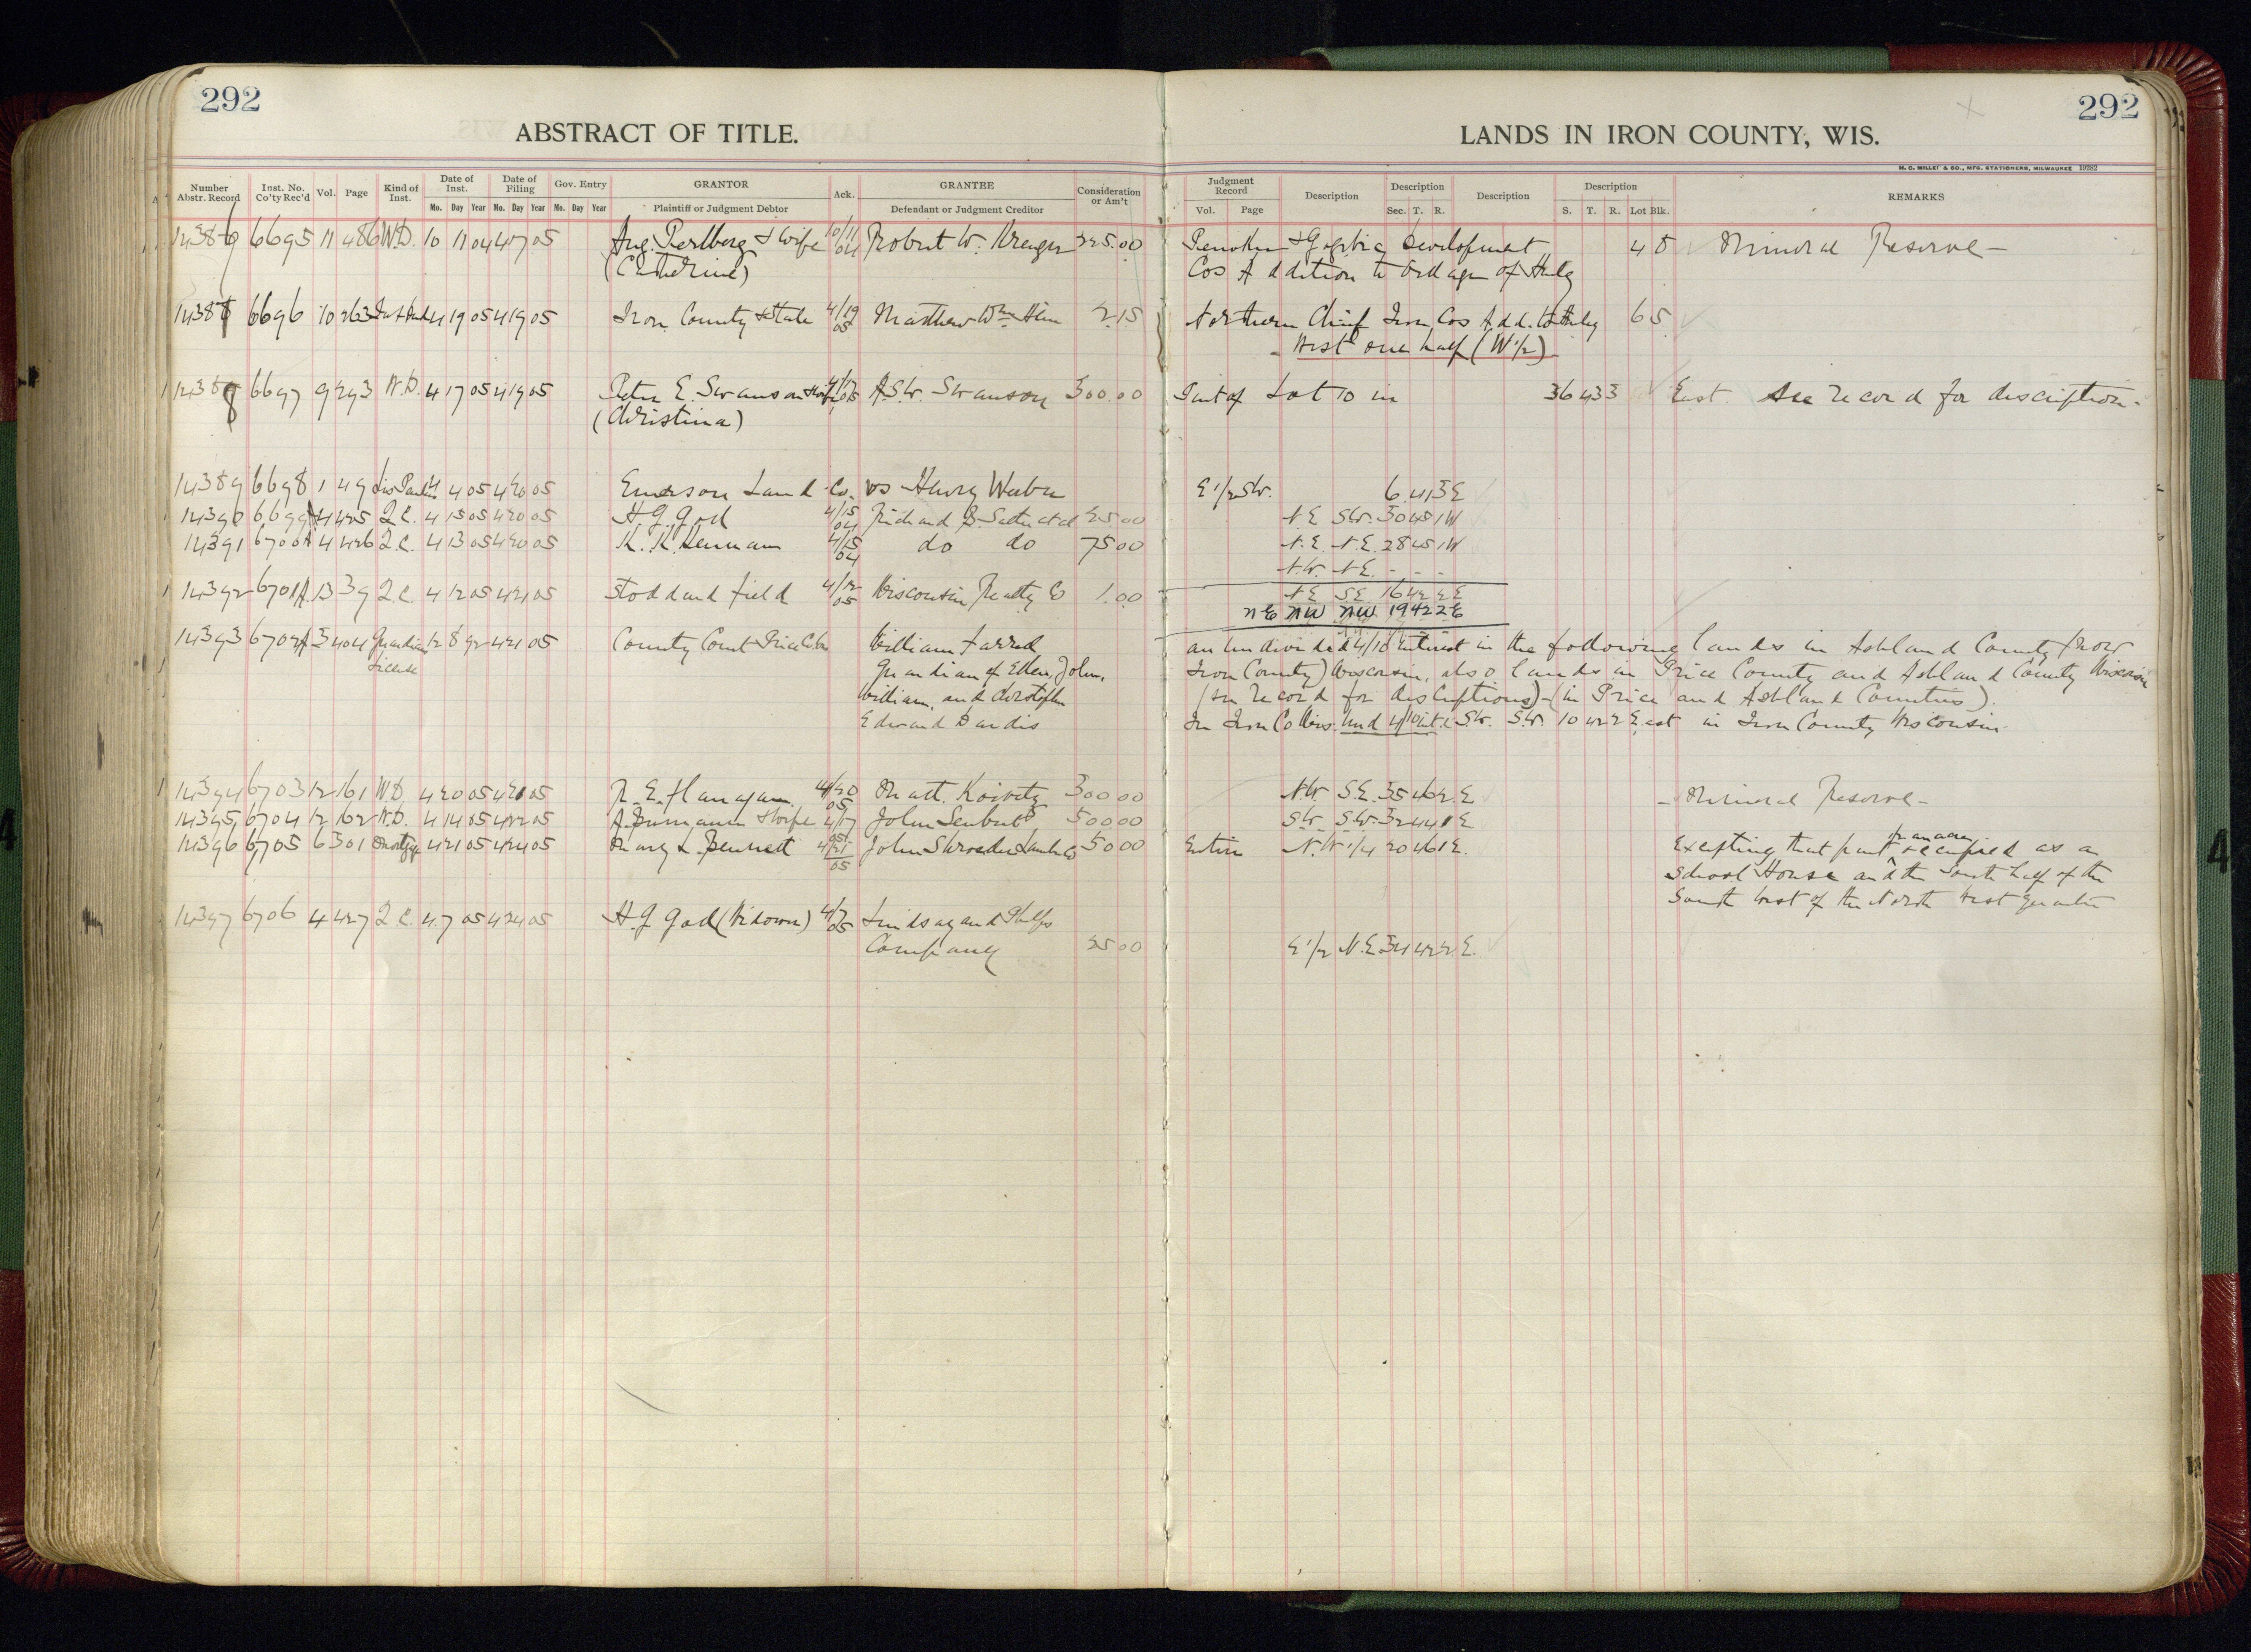 292
292
ABSTRACT OF TITLE.
LANDS IN IRON COUNTY, WIS.
H. C. MILLER & CO., MFG. STATIONERS, MILWAUKEE 19282
Number Abstr. Record Inst. No. Co'ty Rec'd Vol. Page Kind of Inst. Date of Inst. Date of Filing Gov. Entry GRANTOR Ack. GRANTEE Consideration or Am't Judgment Record Description Description Description Description REMARKS
Mo. Day Year Mo. Day Year Mo. Day Year Plaintiff or Judgment Debtor Defendant or Judgment Creditor Vol. Page Sec. T. R. S. T. R. Lot Blk.
6695 11 486 W.D. 10 11 04 4 05 Aug. Perlberg & wife 10/11 04 Robert W. Kreuger 225.00 Penokee & Gogebic Development 4 Mineral Reserve
(Catherine) Cos Addition to of Hurley
6696 10 263 4 19 05 4 19 05 Iron County & State 4/19 05 Matthew Wm 2.15 Northern Chief Iron Cos Add. to Hurley 6 5
West one half (W 1/2)
6697 9 293 W.D. 4 17 05 4 19 05 Peter E. Swanson & wife A.W. Swanson 300.00 Part of Lot 10 in 36 43 3 East. See record for description
(Christina)
14389 6698 1 49 Lis Pendens 4 4 05 4 20 05 Emerson Land Co. vs Henry E 1/2 SW. 6 41 3 E
14390 6699A 4 425 Q.C. 4 15 05 4 20 05 H. G. 4/15 04 25.00 N.E. SW. 30 45 1W
14391 6700A 4 426 Q.C. 4 13 05 4 20 05 K. K. Kennan 4/15 04 do do 75.00 N.E. N.E. 28 45 1W
N.W. N.E. - - -
14392 6701A 13 39 Q.C. 4 12 05 4 21 05 Stoddard Field 4/12 05 Wisconsin Realty Co 1.00 N.E. S.E. 16 42 2E
NE NW NW 19 42 2E
14393 6702A 3 404 Guardians 12 8 92 4 21 05 County Court Price Co. William an undivided 4/10 interest in the following lands in Ashland County (now
License Guardian of Ellen, John, Iron County) Wisconsin, also lands in Price County and Ashland County Wisconsin
William, and (see record for descriptions) - (in Price and Ashland Counties).
Edward In Iron Co Wis. und 4/10 int. S.W. S.W. 10 42 2 East in Iron County Wisconsin
14394 6703 12 161 W.D. 4 20 05 4 05 R. E. Flanagan 4/20 05 Matt. 300.00 N.W. S.E. 35 46 2 E Mineral Reserve
14395 6704 12 162 W.D. 4 14 05 4 22 05 & wife 4/17 05 John 500.00 S.W. S.W. 32 44 1 E
14396 6705 6 301 Mortgage 4 21 05 4 24 05 Mary L. Bennett 4/21 05 John Schroeder Lumber Co 50.00 Entire N.W 1/4 20 46 1 E. Excepting that part occupied as a
School House and the South half of the
South West of the North West Quarter
14397 6706 4 427 Q.C. 4 7 05 4 24 05 H. G. (Widower) 4/7 05 Lindsay and Phelps
Company 25.00 E 1/2 N.E. 34 42 2 E.